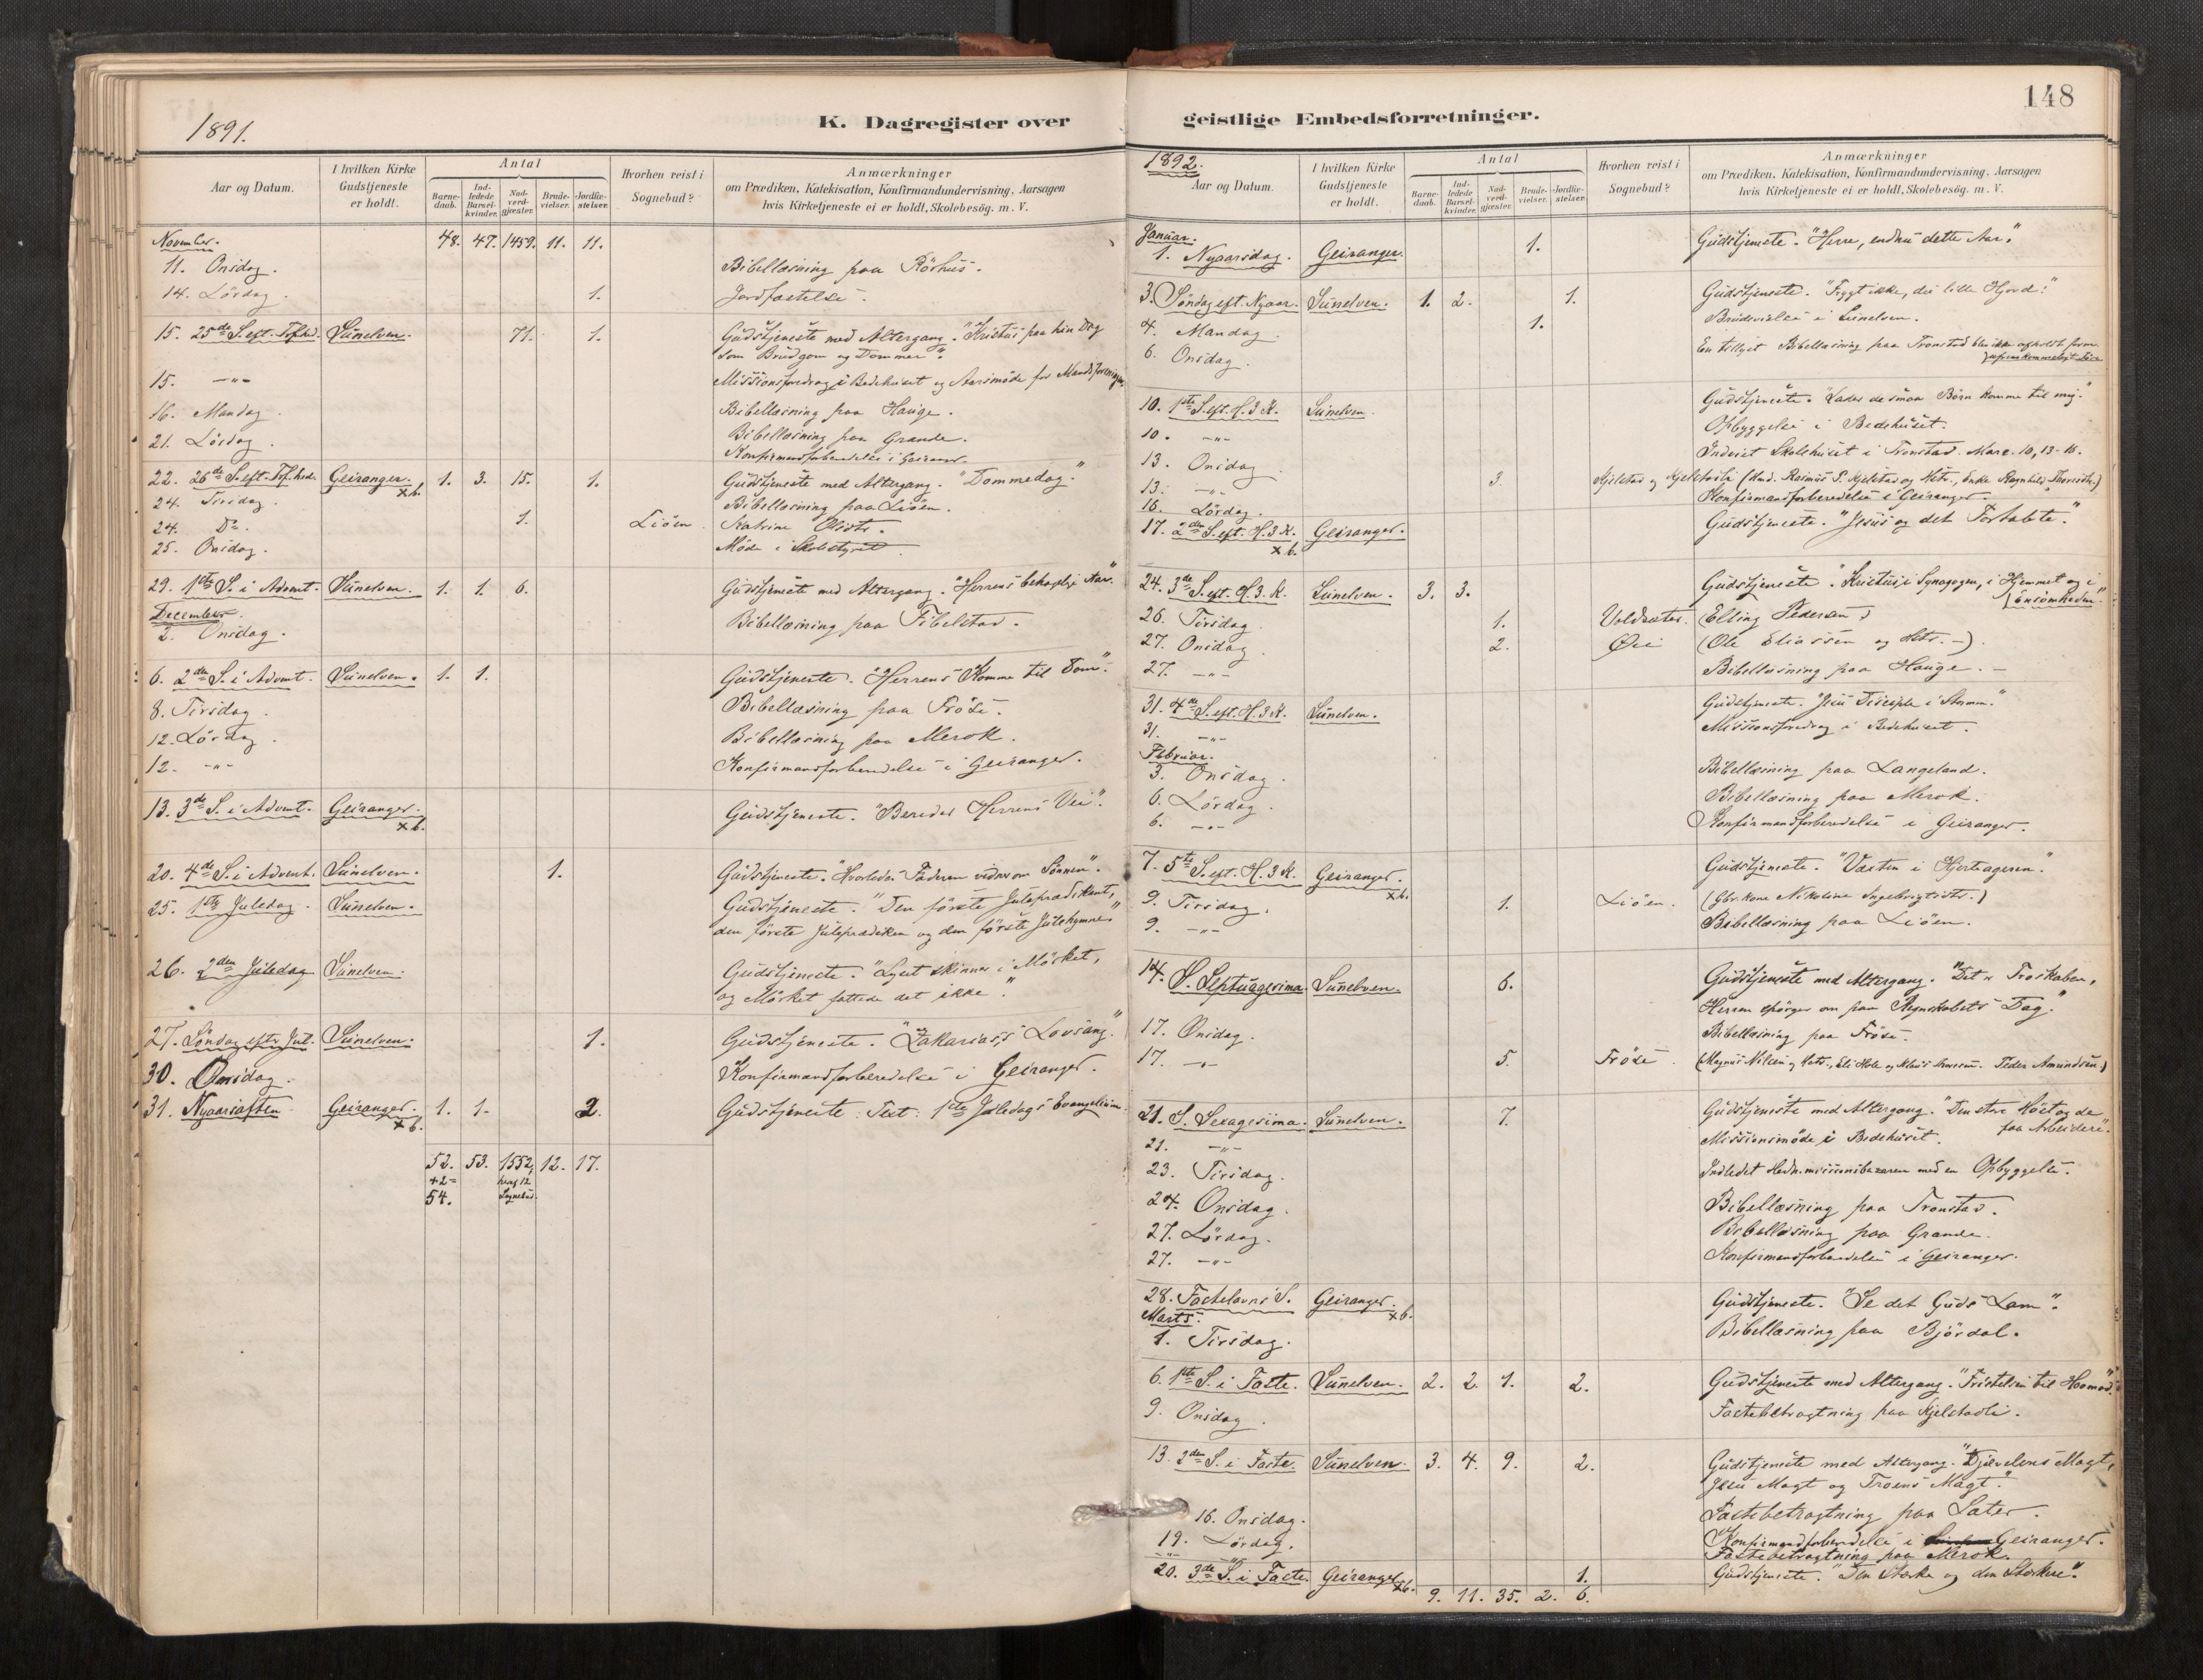 1891.
K. Dagregister over
Aar og Datum.
I hvilken Kirke Gudstjeneste er holdt.
Antal
Barnedaab.
Indledede Barselkvinder.
Nadverdgjæster.
Brudevielser.
Jordfæstelser.
Hvorhen reist i Sognebud?
Anmærkninger
om Prædiken, Katekisation, Konfirmandundervisning, Aarsagen
hvis Kirketjeneste ei er holdt, Skolebesög. m. V.
November. 48. 47. 1459. 11. 11.
11. Onsdag. Bibellæsning paa Rörhus.
14. Lördag. 1. Jordfæstelse.
15. 25de S. eft. Trefhed. Sunelven. 71. 1. Gudstjeneste med Altergang. "Kristus paa hin Dag
som Brudgom og Dommer".
15. -"- Missionsforedrag i Bedehuset og Aarsmöde for Mandsforeningen.
16. Mandag. Bibellæsning paa Hauge.
21. Lördag. Bibellæsning paa Grande.
Konfirmandforberedelse i Geiranger.
22. 26de S. eft. Tref.hed. Geiranger. x b. 1. 3. 15. 1. Gudstjeneste med Altergang. "Dommedag".
24. Tirsdag. Bibellæsning paa Liöen.
24. Do. 1. Liöen. Katrine Olsdtr.
25. Onsdag. Möde i Skolestyret.
29. 1ste S. i Advent. Sunelven. 1. 1. 6. Gudstjeneste med Altergang. "Herrens behagelige Aar".
December.
2. Onsdag. Bibellæsning paa Fibelstad.
6. 2den S. i Advent. Sunelven. 1. 1. Gudstjeneste. "Herrens Komme til Dom".
8. Tirsdag. Bibellæsning paa Fröse.
12. Lördag. Bibellæsning paa Merok.
12. -"- Konfirmandforberedelse i Geiranger.
13. 3de S. i Advent. Geiranger. x b. Gudstjeneste. "Bereder Herrens Vei".
20. 4de S. i Advent. Sunelven. 1. Gudstjeneste. "Hvorledes Faderen vidner om Sönnen".
25. 1ste Juledag. Sunelven. Gudstjeneste. "Den förste Juleprædikant,
den förste Juleprædiken og den förste Julehymne"
26. 2den Juledag Sunelven. Gudstjeneste. "Lyset skinner i Mörket,
og Mörket fattede det ikke".
27. Söndag efter Jul. Sunelven. 1. Gudstjeneste. "Zakarias's Lovsang".
30. Onsdag. Konfirmandforberedelse i Geiranger.
31. Nyaarsaften Geiranger. x b. 1. 1. 2. Gudstjeneste. Text: 1ste Juledags Evangelium.
52. 53. 1552, 12. 17.
+2= hvoraf 12
54. Sognebud.
148
geistlige Embedsforretninger.
1892.
Aar og Datum.
I hvilken Kirke Gudstjeneste er holdt.
Antal
Barnedaab.
Indledede Barselkvinder.
Nadverdgjæster.
Brudevielser.
Jordfæstelser.
Hvorhen reist i Sognebud?
Anmærkninger
om Prædiken, Katekisation, Konfirmandundervisning, Aarsagen
hvis Kirketjeneste ei er holdt, Skolebesög. m. V.
Januar.
1. Nyaarsdag. Geiranger. 1. Gudstjeneste. "Herre, endnu dette Aar."
3. Söndag eft. Nyaar. Sunelven. 1. 2. 1. Gudstjeneste. "Frygt ikke, du lille Hjord".
4. Mandag. 1. Brudevielse i Sunelven.
6. Onsdag. En tillyst Bibellæsning paa Tronstad blev ikke afholdt
10. 1ste S. eft. H. 3 K. Sunelven. Gudstjeneste. "Lader de smaa Börn komme til mig".
10. -"- Opbyggelse i Bedehuset.
13. Onsdag. Indviet Skolehuset i Tronstad. Marc. 10, 13-16.
13. -"- 3. Kjelstad og Kjelstadli (Rasmus P. Kjelstad og Hstr., Enke Ragnhild)
16. Lördag. Konfirmandforberedelse i Geiranger.
17. 2den S. eft. H. 3 K. x b. Geiranger. Gudstjeneste. "Jesus og det Fortabte".
24. 3de S. eft. H. 3. K. Sunelven. 3. 3. Gudstjeneste. "Kristus i Synagogen, i Hjemmet og i
Ensomheden".
26. Tirsdag. 1. Voldsæter. (Elling Pedersen)
27. Onsdag 2. Öie (Ole Eliassen og Hstr. -).
27. -"- Bibellæsning paa Hauge. -
31. 4de S. eft. H. 3 K. Sunelven. Gudstjeneste. "Jesu Disciple i Storm".
31. -"- Missionsforedrag i Bedehuset.
Februar.
3. Onsdag. Bibellæsning paa Langeland.
6. Lördag. Bibellæsning paa Merok.
6. -"- Konfirmandforberedelse i Geiranger.
7. 5te S. eft. H. 3 K. Geiranger. x b. Gudstjeneste. "Væxten i Hjerteageren".
9. Tirsdag. 1. Liöen. (Gbr.kone Nikoline Ingebrigtsdtr.)
9. -"- Bibellæsning paa Liöen.
14. S. Septuagesima. Sunelven. 6. Gudstjeneste med Altergang. "Det er Troskaben,
Herren spörger om paa Regnskabets Dag".
17. Onsdag. Bibellæsning paa Fröse.
17. -"- 5. Fröse. (Magnus Nilsen og Hstr., Peder Amundsen)
21. S. Sexagesima. Sunelven. 7. Gudstjeneste med Altergang. "Den store Höst og de
faa Arbeidere".
21. -"- Missionsmöde i Bedehuset.
23. Tirsdag. Indledet Hedn.missionsbazaren med en Opbyggelse.
24. Onsdag. Bibellæsning paa Tronstad.
27. Lördag. Bibellæsning paa Grande.
27. -"- Konfirmandforberedelse i Geiranger.
28. Fastelavns S. Geiranger. x b. Gudstjeneste. "Se det Guds Lam".
Marts.
1. Tirsdag. Bibellæsning paa Björdal.
6. 1ste S. i Faste. Sunelven. 2. 2. 1. 2. Gudstjeneste med Altergang. "Fristelsen til Hovmod".
9. Onsdag. Fastebetragtning paa Kjelstadli.
13. 2den S. i Faste. Sunelven. 3. 4. 9. 2. Gudstjeneste med Altergang. "Djævelens Magt,
Jesu Magt og Troens Magt".
16. Onsdag. Fastebetragtning paa Sæter.
19. Lördag. Konfirmandforberedelse i Geiranger.
-"- -"- Fastebetragtning paa Merok.
20. 3de S. i Faste. Geiranger x b. 1. Gudstjeneste. "Den Stærke og den Stærkere".
9. 11. 35. 2. 6.